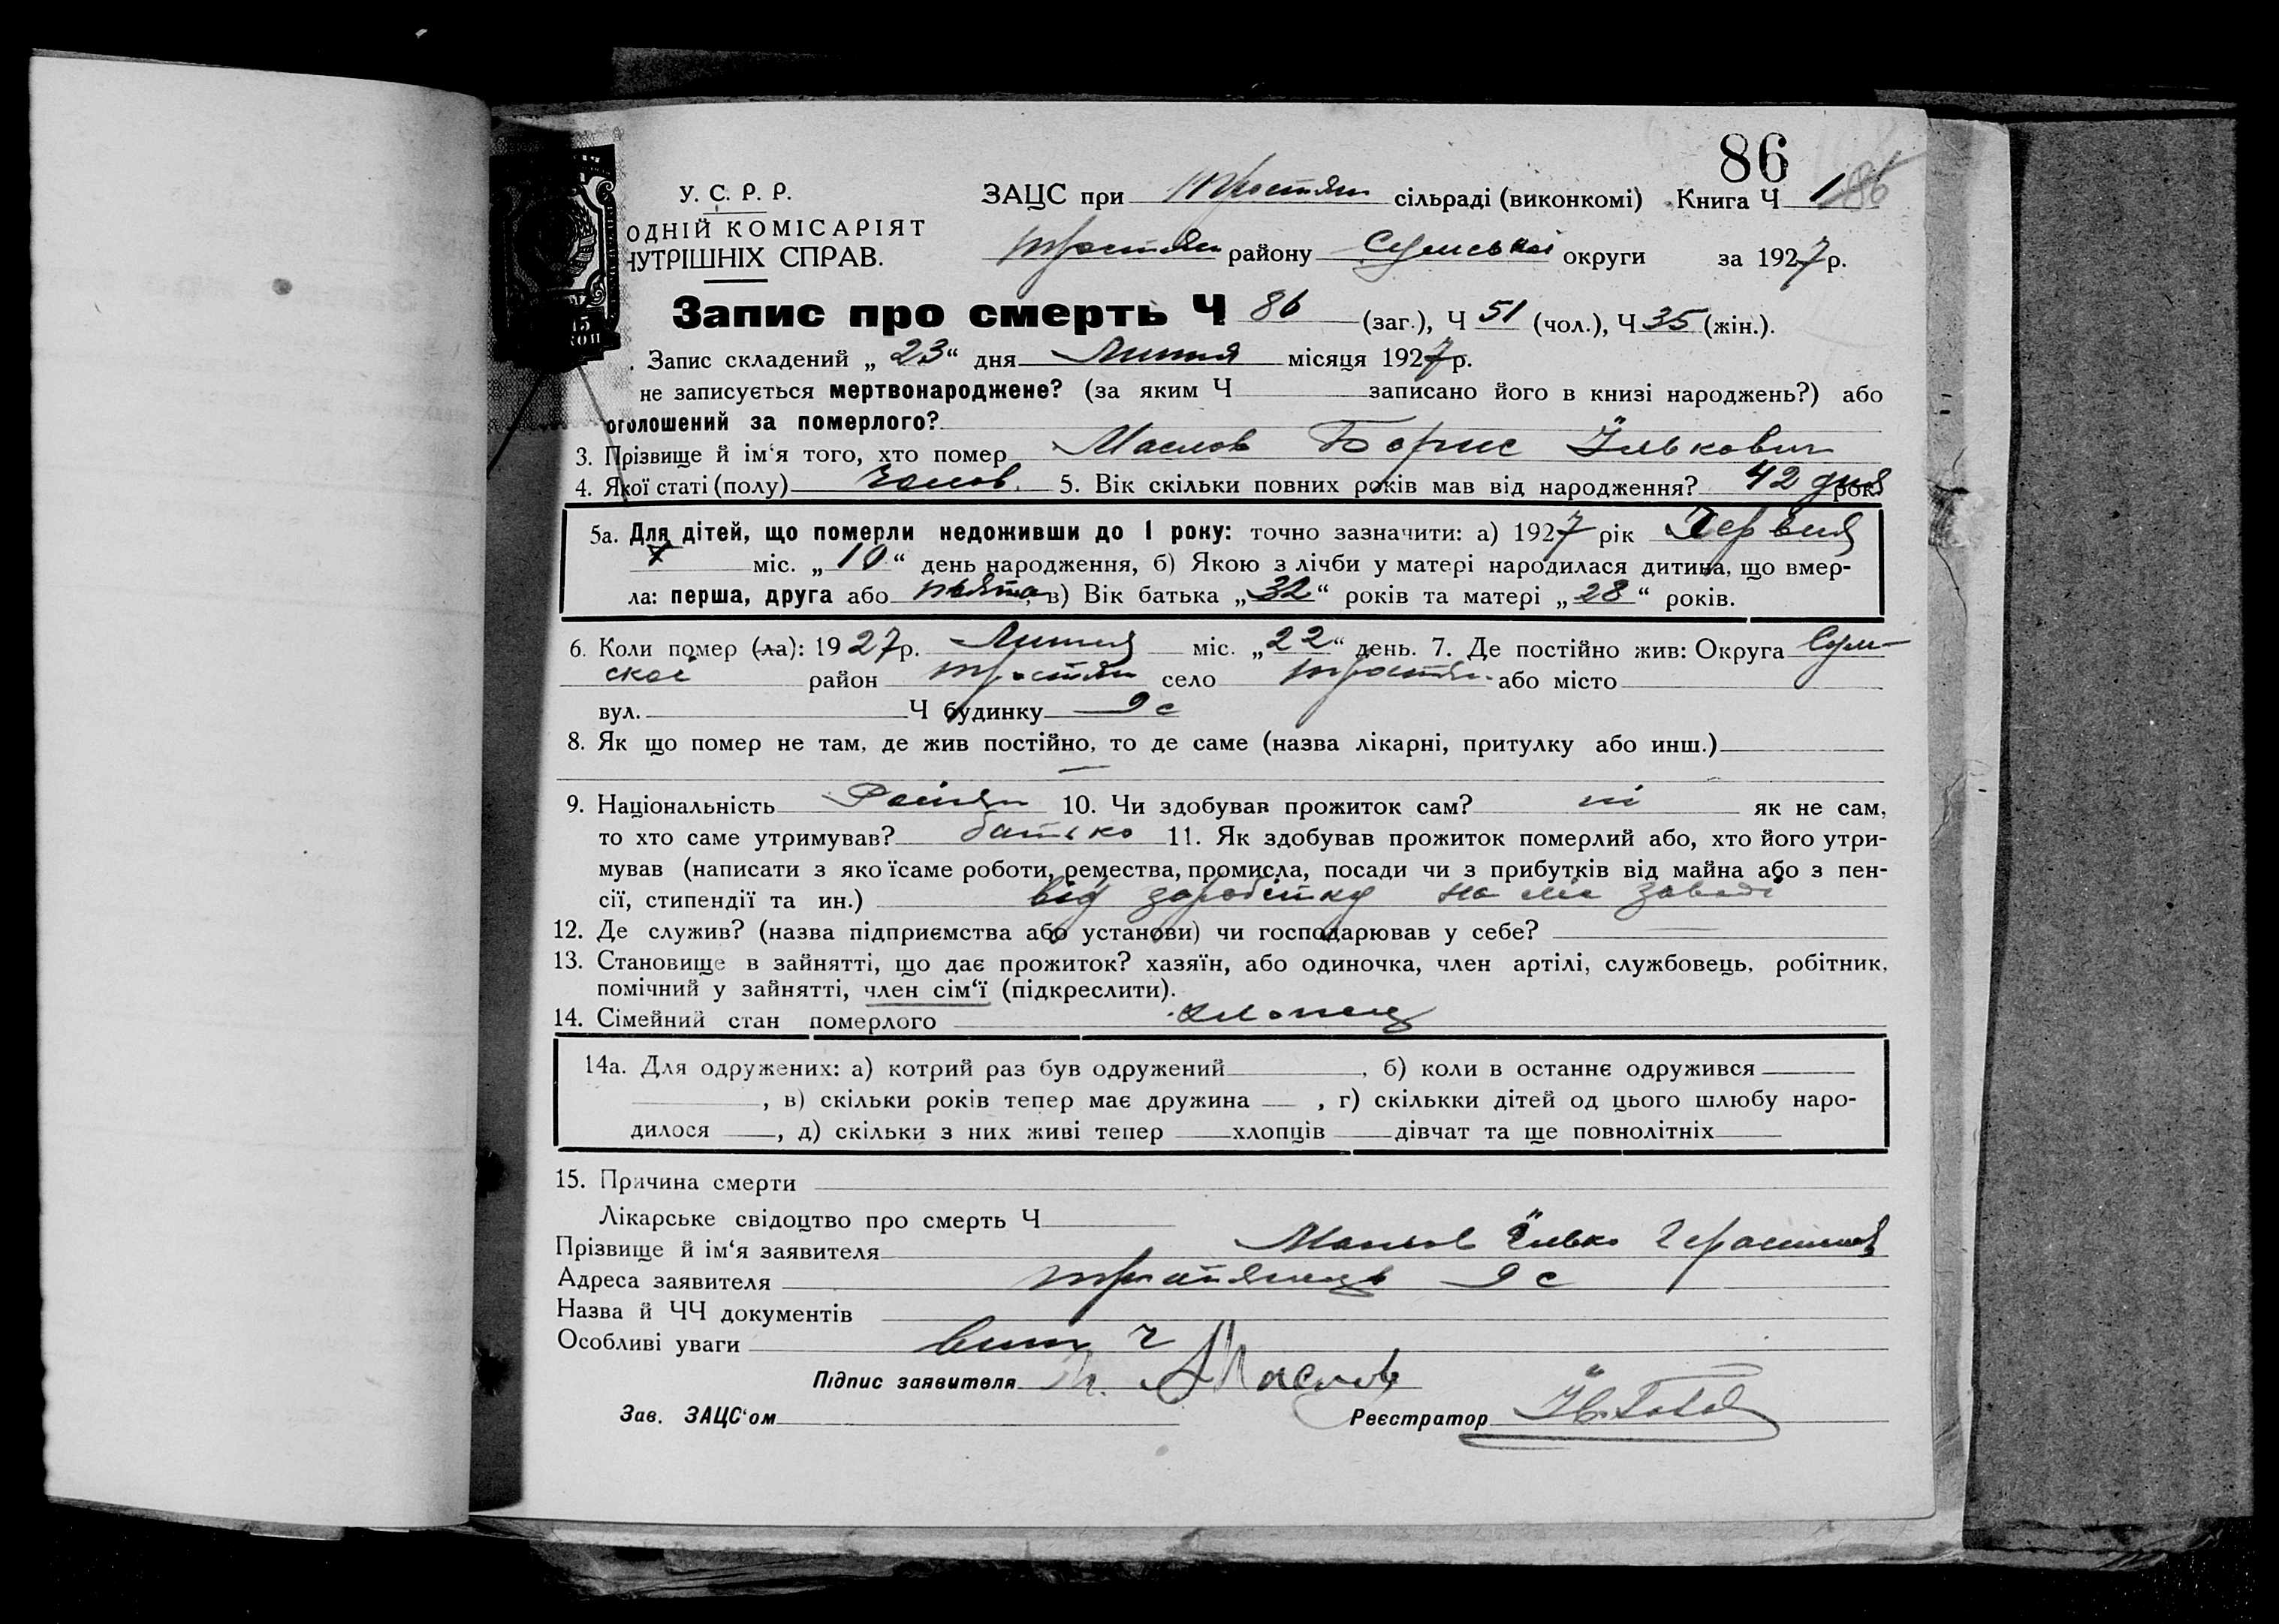 86
У. С. Р. Р.
ЗАЦС при Тростян сільраді (виконкомі) Книга Ч 1
ОДНІЙ КОМІСАРІЯТ
Тростян району Сумської округи за 1927 р.
НУТРІШНІХ СПРАВ.
15
коп
Запис про смерть Ч 86 (заг.), Ч 51 (чол.), Ч 35 (жін.).
. Запис складений „ 23 “ дня Липня місяця 1927 р.
не записується мертвонароджене? (за яким Ч записано його в книзі народжень?) або
оголошений за померлого?
3. Прізвище й ім‘я того, хто помер Маслов Борис Ількович
4. Якої статі (полу) Чолов. 5. Вік скільки повних років мав від народження? 42 дня рок.
5а. Для дітей, що померли недоживши до 1 року: точно зазначити: а) 1927 рік Червня
міс. „ 10 “ день народження, б) Якою з лічби у матері народилася дитина, що вмер-
ла: перша, друга або пьята, в) Вік батька „ 32 “ років та матері „ 28 “ років.
6. Коли помер (ла): 1927 р. Липня міс. „ 22 “ день. 7. Де постійно жив: Округа Сум-
ской район Тростян село Тростян. або місто
вул. Ч будинку 9 с
8. Як що помер не там, де жив постійно, то де саме (назва лікарні, притулку або инш.)
9. Національність Росіян 10. Чи здобував прожиток сам? ні як не сам,
то хто саме утримував? батько 11. Як здобував прожиток померлий або, хто його утри-
мував (написати з яко їсаме роботи, ремества, промисла, посади чи з прибутків від майна або з пен-
сії, стипендії та ин.) від заробітку на ліс заводі
12. Де служив? (назва підприємства або установи) чи господарював у себе?
13. Становище в зайнятті, що дає прожиток? хазяїн, або одиночка, член артілі, службовець, робітник,
помічний у зайнятті, член сім‘ї (підкреслити).
14. Сімейний стан померлого хлопець
14а. Для одружених: а) котрий раз був одружений , б) коли в останнє одружився
, в) скільки років тепер має дружина , г) скількки дітей од цього шлюбу наро-
дилося , д) скільки з них живі тепер хлопців дівчат та ще повнолітніх
15. Причина смерти
Лікарське свідоцтво про смерть Ч
Прізвище й ім‘я заявителя Маслов Ілько Герасимов
Адреса заявителя Тростянець 9 с
Назва й ЧЧ документів
Особливі уваги
Підпис заявителя Маслов
Зав. ЗАЦС‘ом Реєстратор